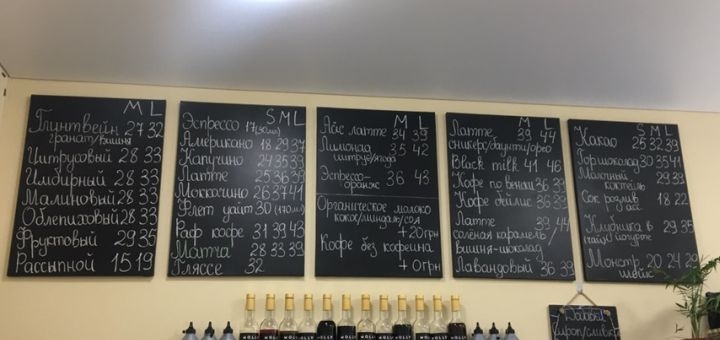 M L
Глинтвейн 27 32
гранат/вишня
Цитрусовый 28 33
Имбирный 28 33
Малиновый 28 33
Облепиховый 28 33
Фруктовый 29 35
Рассыпной 15 19
S M L
Эспрессо 17 (30мл)
Американо 18 29 37
Капучино 24 35 39
Латте 25 36 39
Моккачино 26 37 41
Флет уайт 30 (170мл)
Раф кофе 31 39 43
Матча 28 33 39
Гляссе 32
M L
Айс латте 34 39
Лимонад 35 42
цитрус/ягода
Эспрессо- 36 43
оранж
Органическое молоко
кокос/миндаль/соя
+20грн
Кофе без кофеина
+0грн
M L
Латте 39 44
сникерс/баунти/орео
Black milk 41 46
Кофе по венски 36 39
Кофе бейлис 36 39
Латте 39 44
солёная карамель/
вишня-шоколад
Лавандовый 36 39
S M L
Какао 25 32 39
Гор.шоколад 30 35 41
Молочный 29 39
коктейль
Сок розлив 18 22
Клубника в 29 35
йогурте
Монстр 20 24 29
шейк